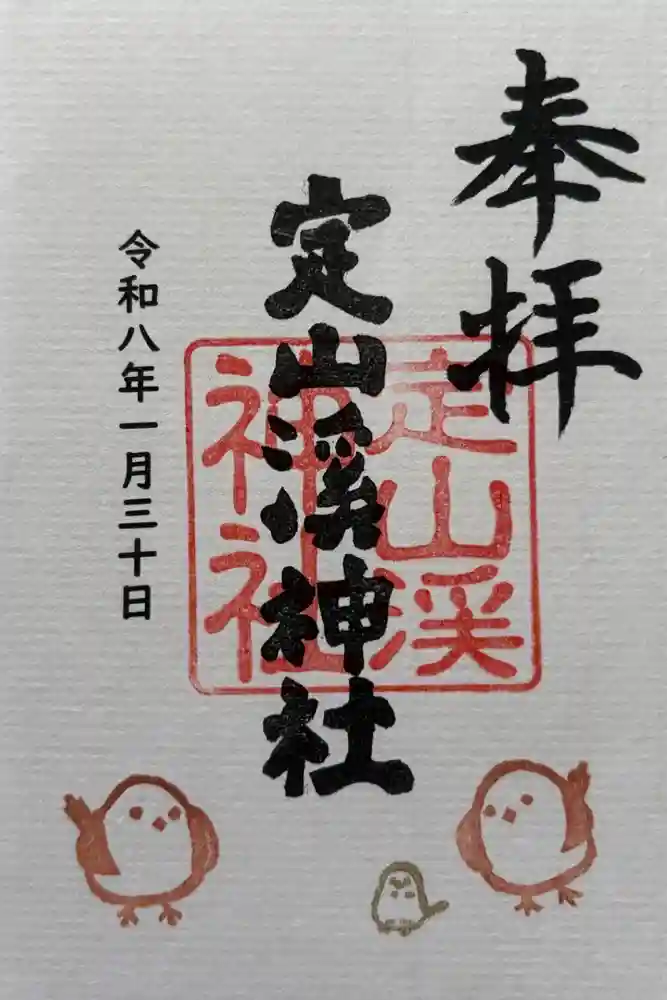 奉拝
定山渓神社
定山渓
神社
令和八年一月三十日